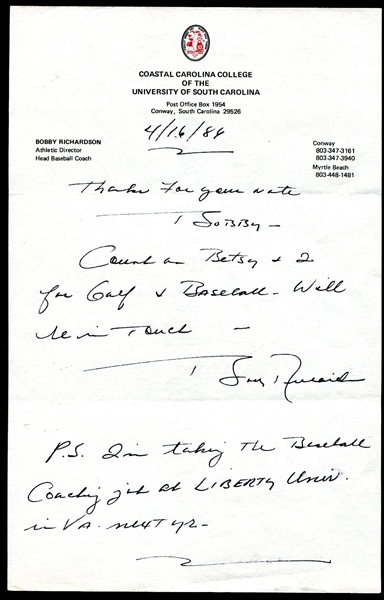 COASTAL CAROLINA COLLEGE
OF THE
UNIVERSITY OF SOUTH CAROLINA
Post Office Box 1954
Conway, South Carolina 29526
4/16/86
BOBBY RICHARDSON
Athletic Director
Head Baseball Coach
Conway
803-347-3161
803-347-3940
Myrtle Beach
803-448-1481
Thanks For your note
BOBBY -
Count on Betsy & I
for Golf & Baseball - Will
be in Touch -
P.S. I'm taking The Baseball
Coaching job at LIBERTY Univ.
in VA. next yr -